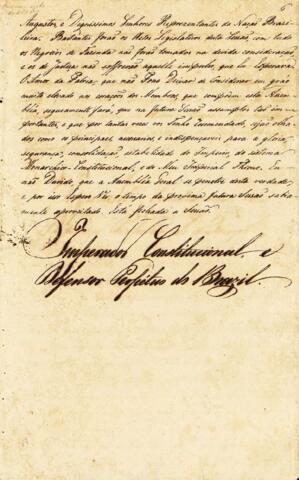 6
Augustos, e Dignissimos Senhores Representantes da Nação Brazi-
leira. Bastantes forão os Actos Legislativos desta Sessão, com tudo
os Negocios de Fazenda não forão tomados na devida consideração,
e os de Justiça não soffrerão aquelle impulso, que Eu Esperava.
O Amor da Patria, que não Posso Deixar de Considerar em gráo
muito elevado no coração dos Membros, que compõem esta Assem-
bléa, seguramente fará, que na futura Sessão assumptos tão im-
portantes, e que por tantas vezes vos Tenho recommendado, sejão olha-
dos como os principaes, necessarios, e indispensaveis para a gloria,
segurança, consolidação, estabilidade do Imperio, do sistema
Monarchico-Constitucional, e do Meu Imperial Throno. Eu
não Duvido que a Assembléa Geral se penetre desta verdade;
e, por isso Espero Ver o tempo da proxima futura Sessão sabia-
mente aproveitado. Está fechada a Sessão.
Imperador Constitucional, e
Defensor Perpetuo do Brazil.